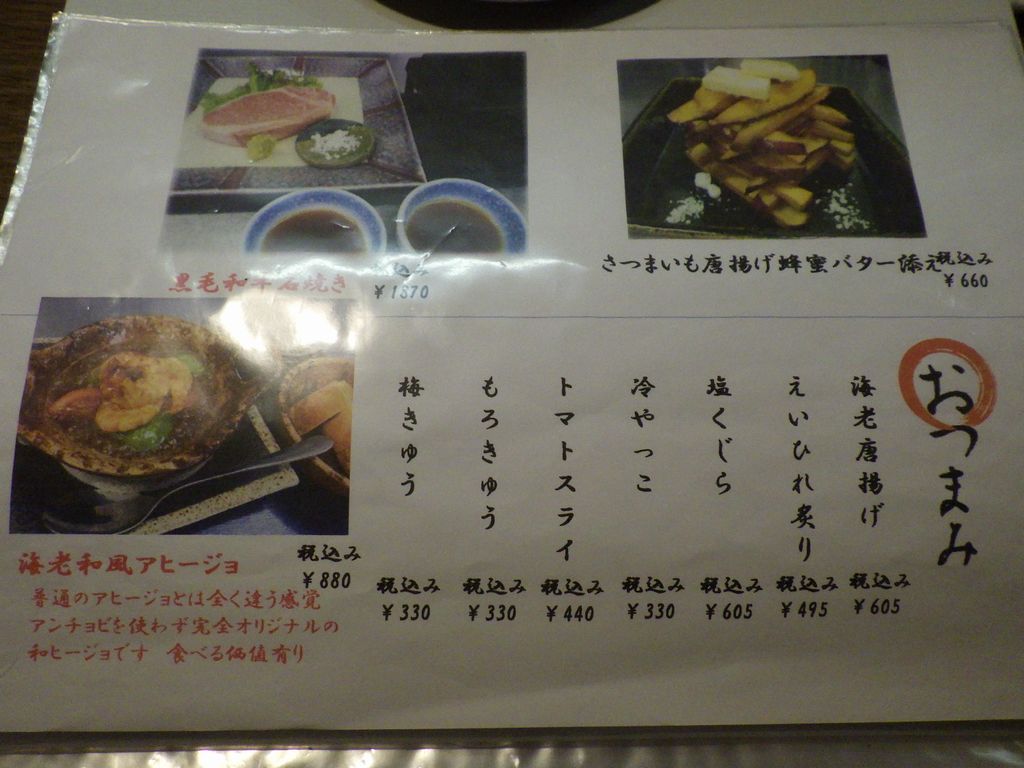 黒毛和牛石焼き
税込み
￥1870
さつまいも唐揚げ蜂蜜バター添え
税込み
￥660
おつまみ
海老唐揚げ
税込み
￥605
えいひれ炙り
税込み
￥495
塩くじら
税込み
￥605
冷やっこ
税込み
￥330
トマトスライ
税込み
￥440
もろきゅう
税込み
￥330
梅きゅう
税込み
￥330
海老和風アヒージョ
税込み
￥880
普通のアヒージョとは全く違う感覚
アンチョビを使わず完全オリジナルの
和ヒージョです　食べる価値有り